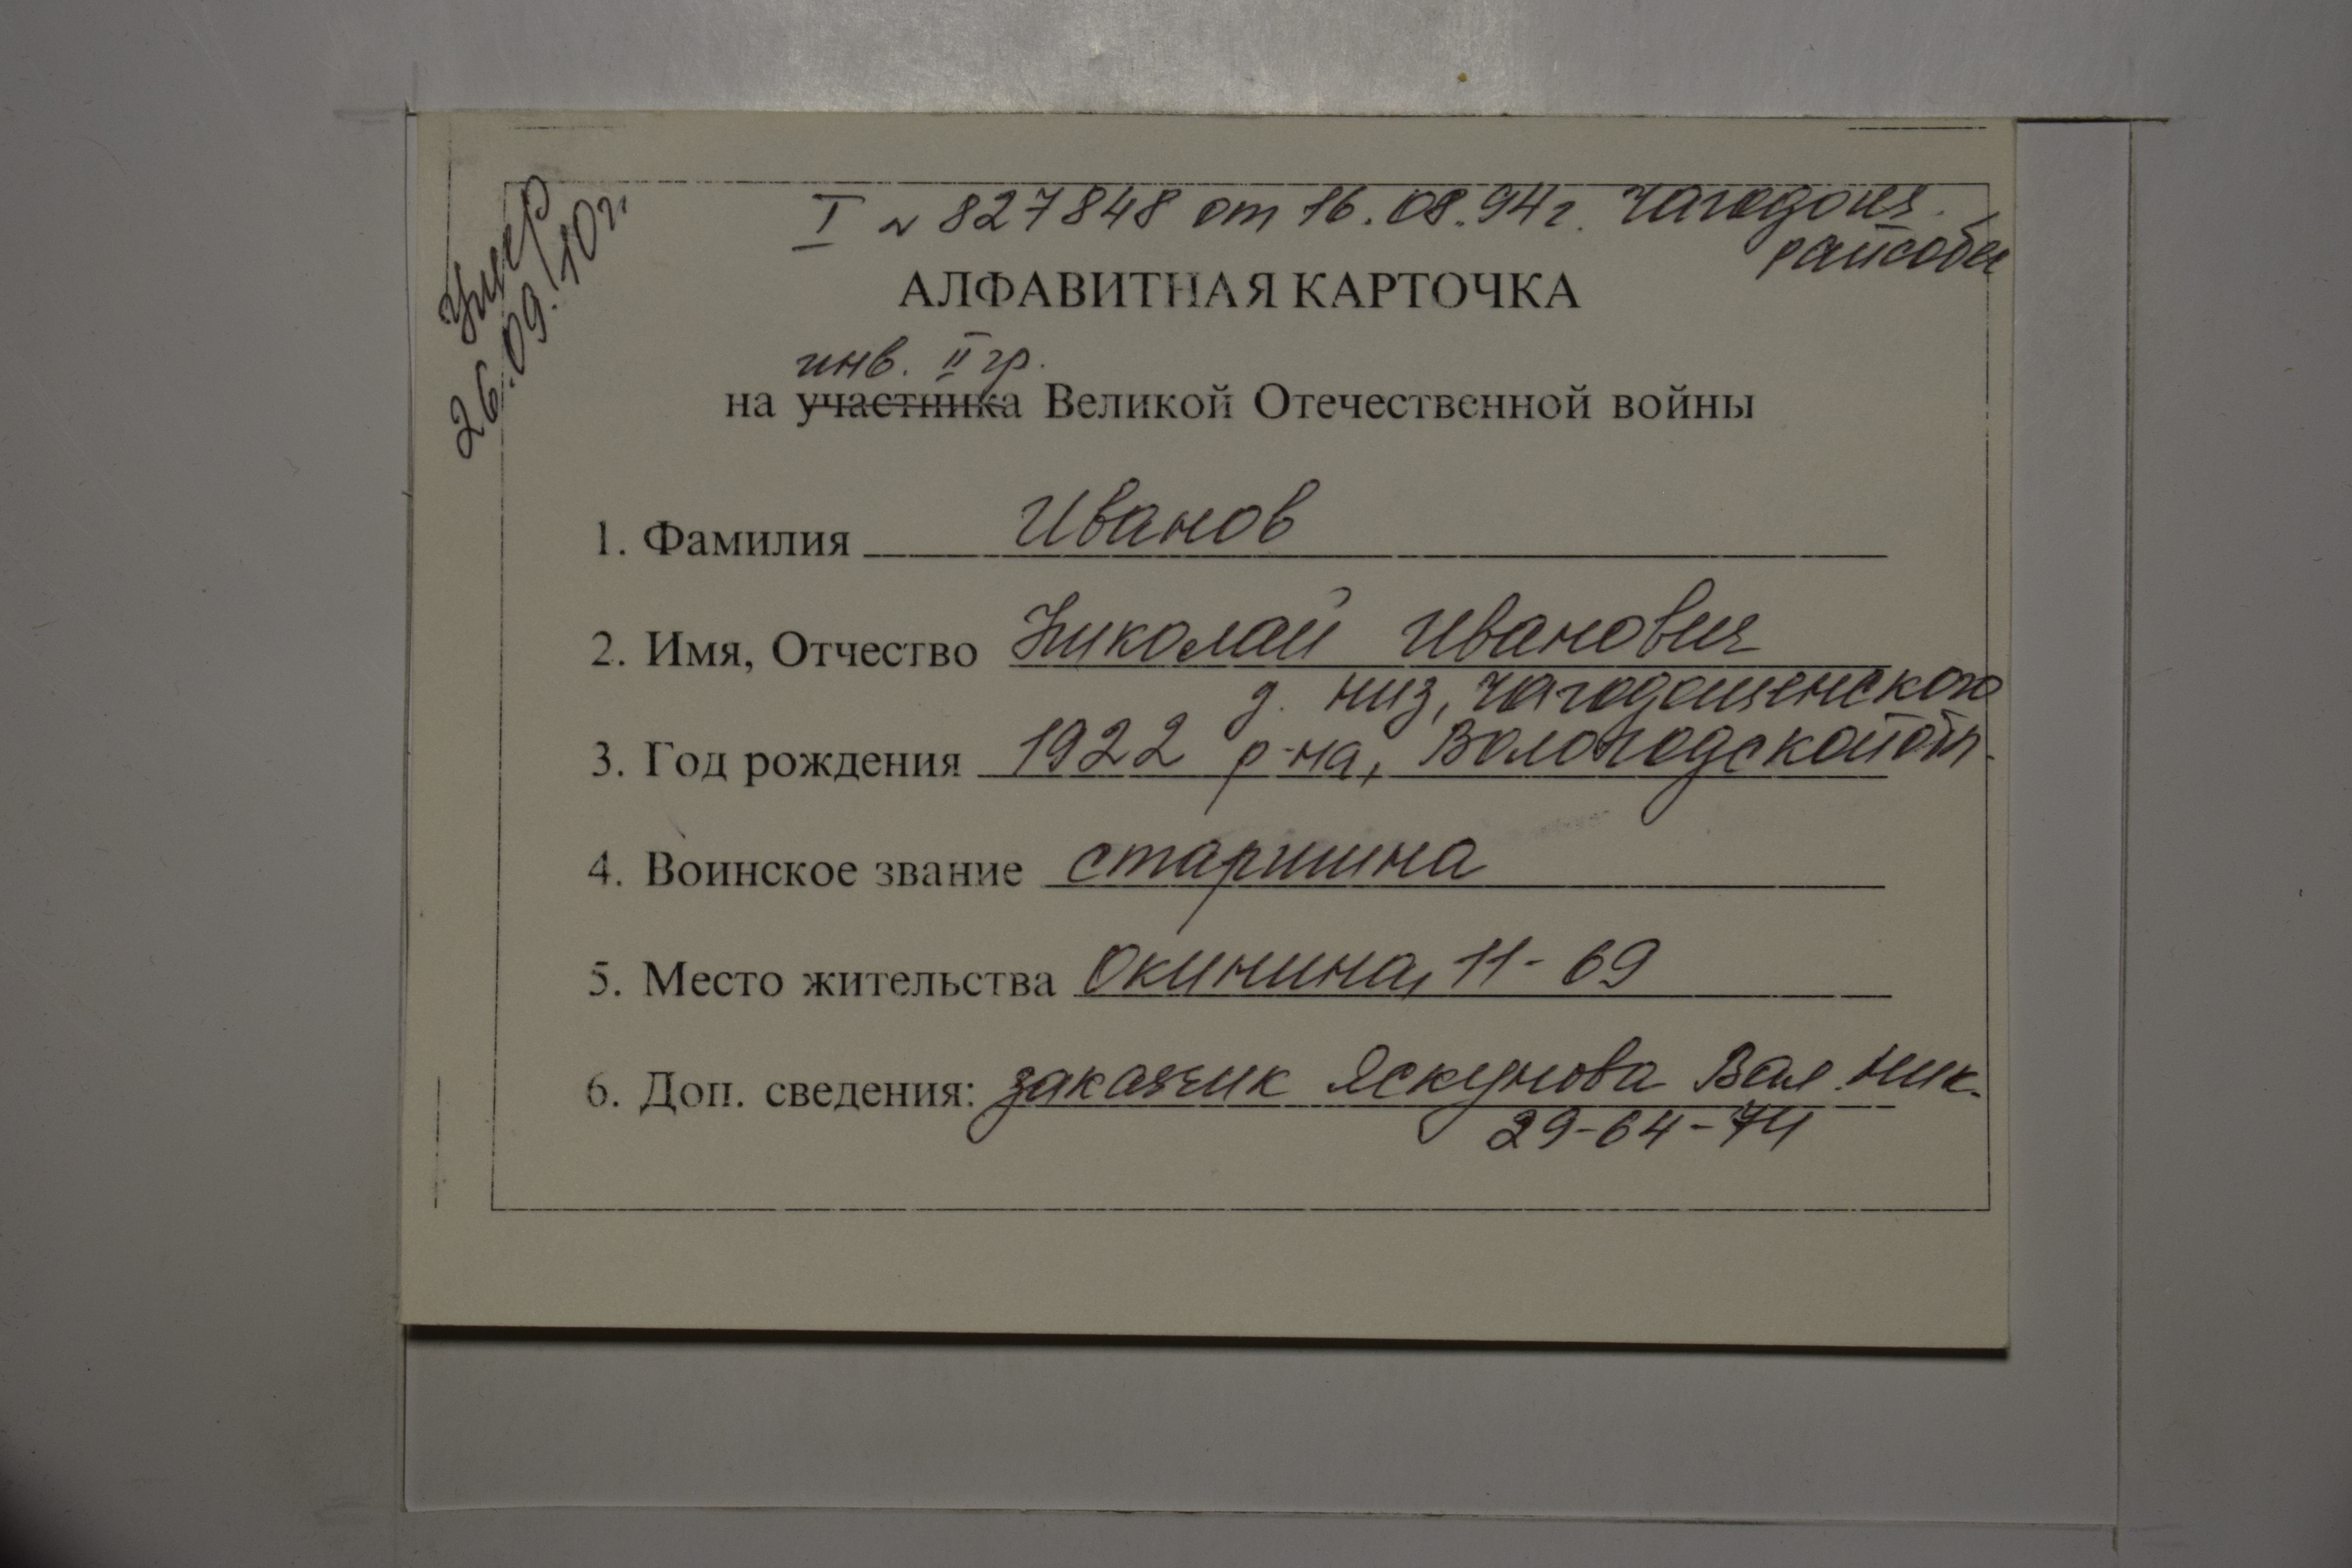 Умер
26.09.10г.
I № 827848 от 16.08.94г. Чагодощ.
райсобес
АЛФАВИТНАЯ КАРТОЧКА
инв. II гр.
на участника Великой Отечественной войны
1. Фамилия Иванов
2. Имя, Отчество Николай Иванович
д. Низ, Чагодощенского
3. Год рождения 1922 р-на, Вологодской обл.
4. Воинское звание старшина
5. Место жительства Окинина, 11-69
6. Доп. сведения: заказчик Яскунова Вал. Ник.
29-64-74